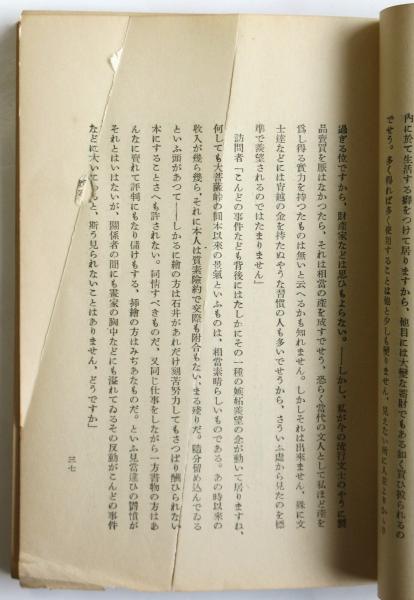 内に於て生活する癖をつけて居りますから、他目には大變な蓄財でもある如く買ひ被られるの
でせう。多く得れば多く使用することは他と少しも變りません、見えない所に人並より
過ぎる位ですから、財產家などは思ひもよらない。――しかし、私が今の流行文士のやうに製
品賣買を厭はなかつたら、それは相當の產を成すでせう、恐らく當代の文人として私ほど產を
爲し得る實力を持つたものは無いと云へるかも知れません。しかしそれは出來ません、殊に文
士達などには宵越の金を持たぬやうな習慣の人も多いでせうから、さういふ處から見たのを標
準で羨望されるのではたまりません」
訪問者「こんどの事件なども背後にはたしかにその一種の嫉妬羨望の念が動いて居りますね、
何しても大菩薩峠の圓本以來の景氣といふものは、相當素晴らしいものである。あの時以來の
收入が幾ら幾ら、それに本人は質素險約で交際も附合もない、まる殘りだ。隨分留め込んでゐる
といふ頭があつて――しかるに繪の方は石井があれだけ刻苦努力してもさつぱり酬ひられない
本にすることさへも許されない。同情すべきものだ、又同じ仕事をしながら一方書物の方はあ
んなに賣れて評判にもなり儲けもする、挿繪の方はみぢあなものだ。といふ見當違ひの鬱憤が
それとはいはたいが、關係者の間にも畫家の胸中などにも溢れてゐるその反動がこんどの事件
などに大い もと、斯う見られないことはありません、どうですか」
三七